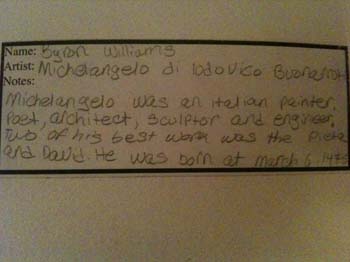 Name: Byron Williams
Artist: Michelangelo di lodovico Buonarroti
Notes:
Michelangelo was an italian painter,
Poet, architect, sculptor and engineer,
Two of his best work was the Pieta
and David. He was born at march 6, 1475